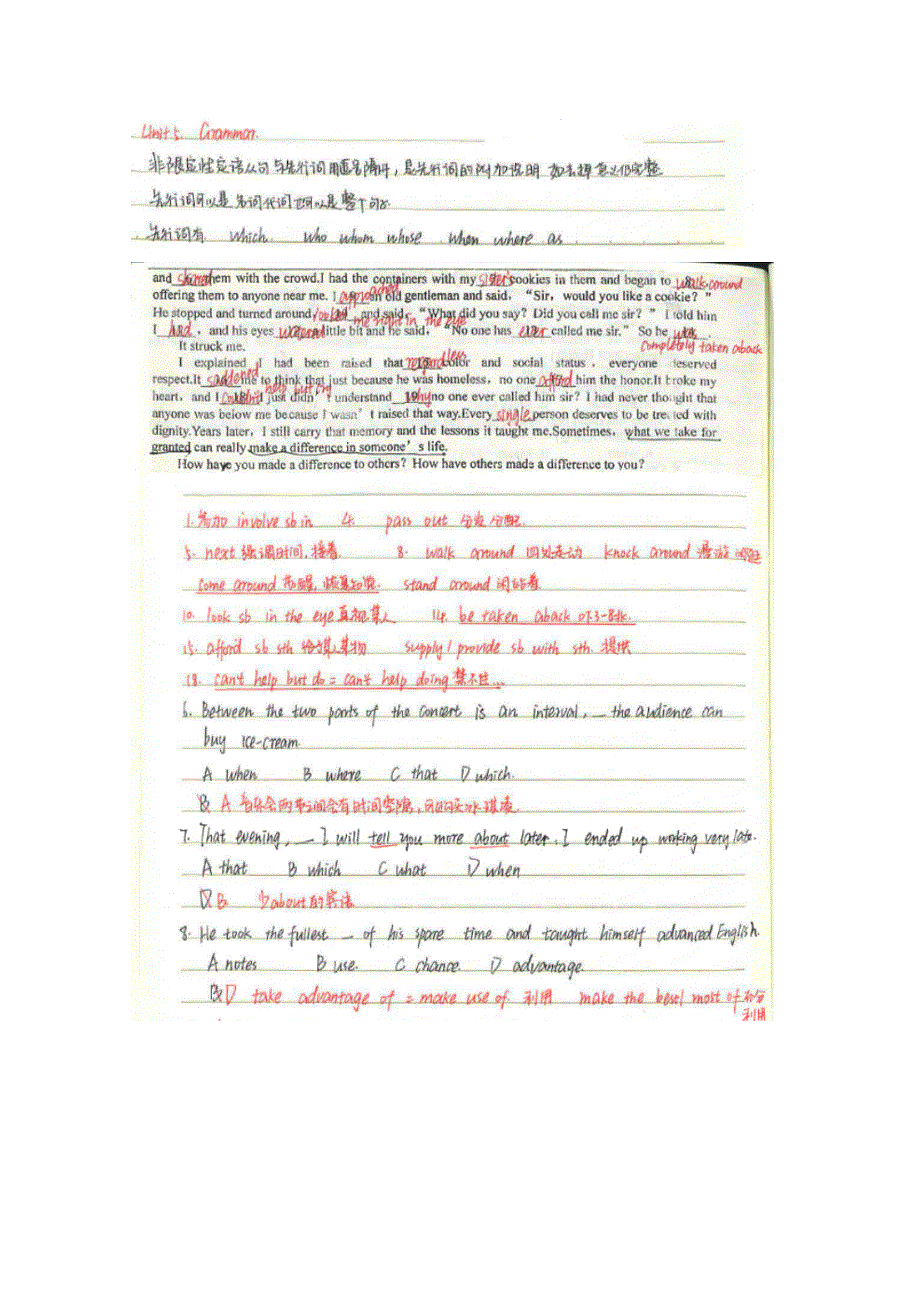 Unit 5. Grammar.
非限定性定语从句与先行词用逗号隔开，是先行词的附加说明 如去掉意义仍完整
先行词可以是名词代词也可以是整个句子
先行词有 which. who whom whose when where as
and share them with the crowd.I had the containers with my sister's cookies in them and began to walk around
offering them to anyone near me. I approached an old gentleman and said, “Sir, would you like a cookie? ”
He stopped and turned around, looked me right in the eye and said, “What did you say? Did you call me sir? ” I told him
I had , and his eyes watered little bit and he said, “No one has ever called me sir.” So he was completely taken aback.
It struck me.
I explained I had been raised that regardless color and social status , everyone deserved
respect.It saddened me to think that just because he was homeless, no one afford him the honor.It broke my
heart, and I couldn't help but cry I just didn't understand 19 why no one ever called him sir? I had never thought that
anyone was below me because I wasn't raised that way.Every single person deserves to be treated with
dignity.Years later, I still carry that memory and the lessons it taught me.Sometimes, what we take for
granted can really make a difference in someone's life.
How have you made a difference to others? How have others made a difference to you?
1. 参加 involve sb in 4. pass out 分发 分配
5. next 强调时间,接着. 8. walk around 四处走动 knock around 漫游 闲逛
come around 苏醒, 恢复知觉. stand around 闲站着
10. look sb in the eye 直视某人 14. be taken aback 吓了一跳.
15. afford sb sth 给某人某物 supply / provide sb with sth. 提供
18. can't help but do = can't help doing 禁不住...
6. Between the two parts of the concert is an interval, — the audience can
buy ice-cream.
A when B where C that D which.
B A 音乐会两节间会有时间空隙,可以购买冰淇凌.
7. That evening, — I will tell you more about later, I ended up working very late.
A that B which C what D when
D B 为about的宾语
8. He took the fullest — of his spare time and taught himself advanced English.
A notes B use. C chance. D advantage.
B D take advantage of = make use of. 利用 make the best / most of 充分
利用